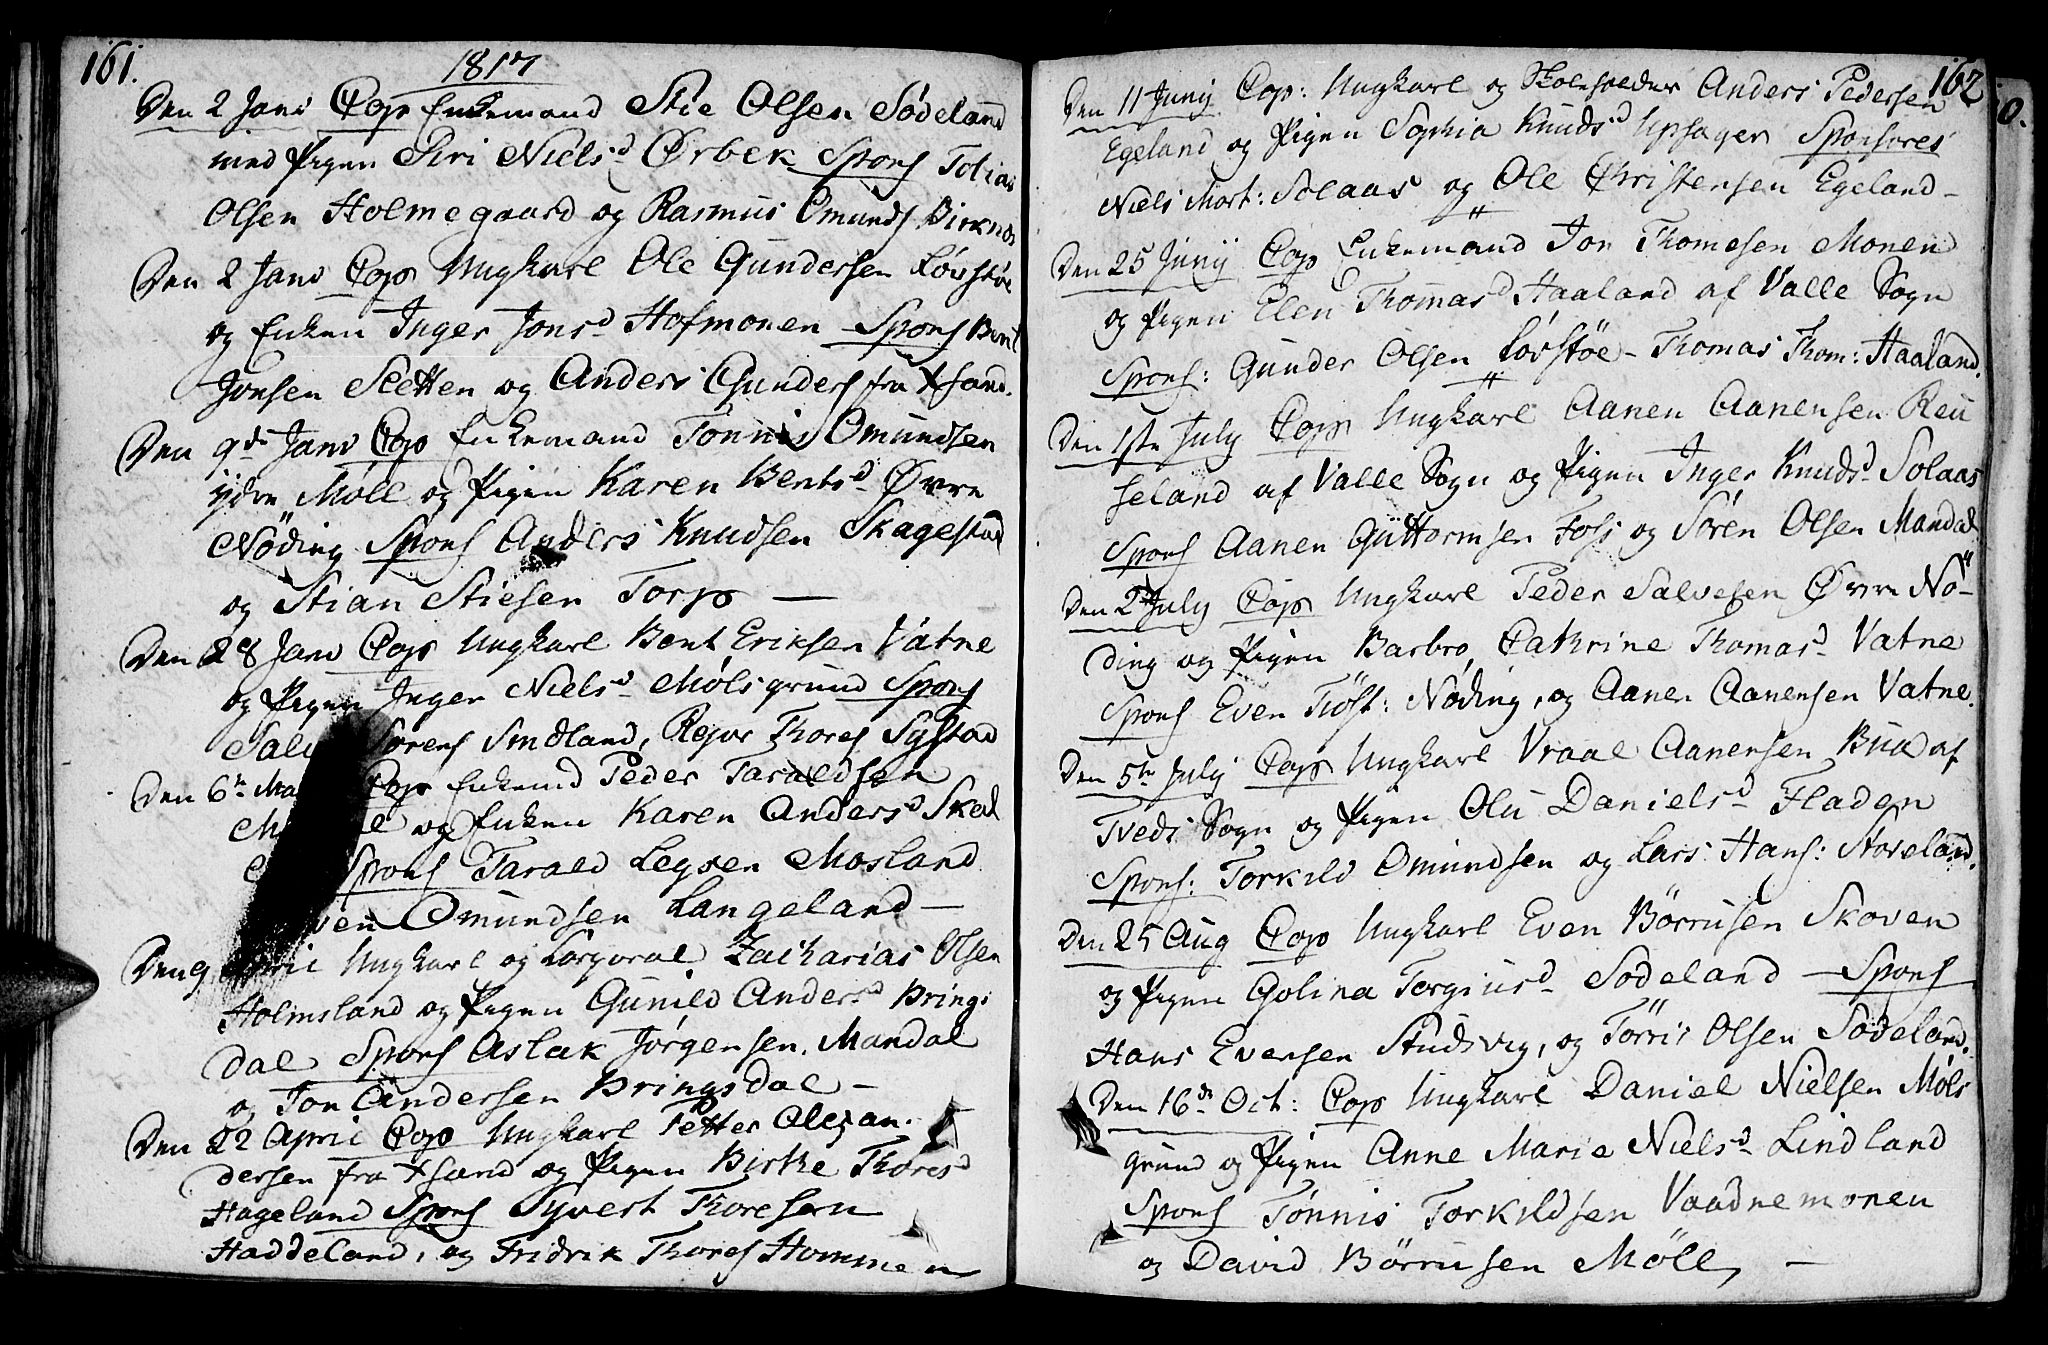 161.
1817
Den 2 Janv Cop Enkemand Stie Olsen Södeland
med Pigen Siri Nielsd Ørbek Spons Tobias
Olsen Holmegaard og Rasmus Omunds Birknes
Den 2 Janv Cop Ungkarl Ole Gundersen Lövstöe
og Enken Inger Jonsd Hofmonen Spons Bent
Jonsen Sletten og Anders Gunders fra Xsand.
Den 9de Janv Cop Enkemand Tönnis Omundsen
ydre Möll og Pigen Karen Bentsd Øvre
Nöding Spons Anders Knudsen Skagestad
og Stian Stiesen Torp —
Den 28 Janv Cop Ungkarl Bent Eriksen Vatne
og Pigen Inger Nielsd Mölsgrund Spons
Sörens Smdland, Rejer Thores Systad
Den 6te Cop Enkemd Peder Taraldsen
og Enken Karen Andersd
Spons Tarald Legsen Mosland
Omundsen Langeland —
Den 9 April Ungkarl og Corporal Zacharias Olsen
Holmsland og Pigen Gunild Andersd Brings
dal Spons Aslak Jörgensen. Mandal
og Jon Andersen Bringsdal —
Den 22 April Cop Ungkarl Petter Alexan.
dersen fra Xsand og Pigen Birthe Thoresd
Hageland Spons Syvert Thoresen
Haddeland, og Fridrik Thores Hommen
162
Den 11 Junij Cop: Ungkarl og Skoleholder Anders Pedersen
Egeland og Pigen Sophia Knudsd Upsager Sponsores
Niels Mort: Solaas og Ole Christensen Egeland —
Den 25 Junij Cop Enkemand Jon Thomesen Monen
og Pigen Elen Thomasd Haaland af Valle Sogn
Spons: Gunder Olsen Lövstöe - Thomas Thom: Haaland.
Den 1ste July Cop Ungkarl Aanen Aanensen Reu
seland af Valle Sogn og Pigen Inger Knudsd Solaas
Spons Aanen Guttormsen Foss og Sören Olsen Mandal
Den 2 July Cop Ungkarl Peder Salvesen Øvre Nö-
ding og Pigen Barbro Cathrine Thomasd Vatne
Spons Even Tröst: Nöding, og Aanen Aanensen Vatne.
Den 5te July Cop Ungkarl Vraal Aanensen Bue af
Tveds Sogn og Pigen Olu Danielsd Fladen
Spons: Torkild Omundsen og Lars Hans: Stoveland.
Den 25 Aug Cop Ungkarl Even Börrusen Skoven
og Pigen Golina Torgiusd Sodeland — Spons
Hans Evensen Studsvig, og Törris Olsen Södeland.
Den 16de Oct: Cop Ungkarl Daniel Nielsen Möls
grund og Pigen Anne Marie Nielsd Lindland
Spons Tönnis Torkildsen Vaadnemonen
og David Börrusen Möll, —
0.